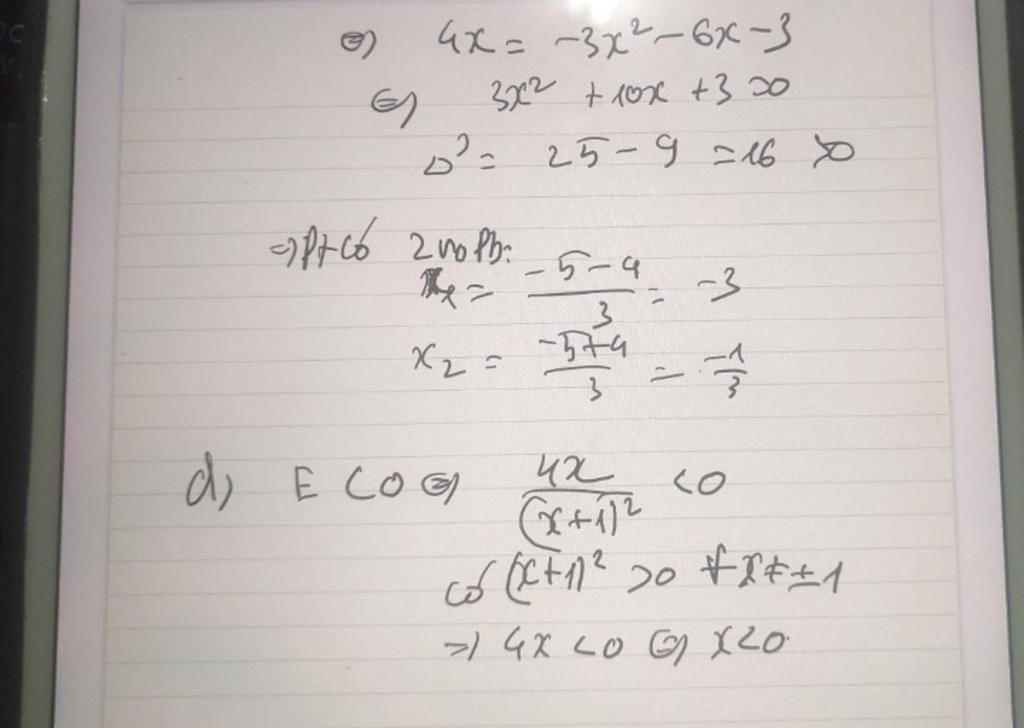 ⇔ 4x = -3x² - 6x - 3
⇔ 3x² + 10x + 3 = 0
Δ' = 25 - 9 = 16 > 0
⇒ Pt có 2 no Pb:
x₁ = (-5-4)/3 = -3
x₂ = (-5+4)/3 = -1/3
d) E < 0 ⇔ 4x/(x+1)² < 0
có (x+1)² > 0 ∀ x ≠ ±1
⇒ 4x < 0 ⇔ x < 0